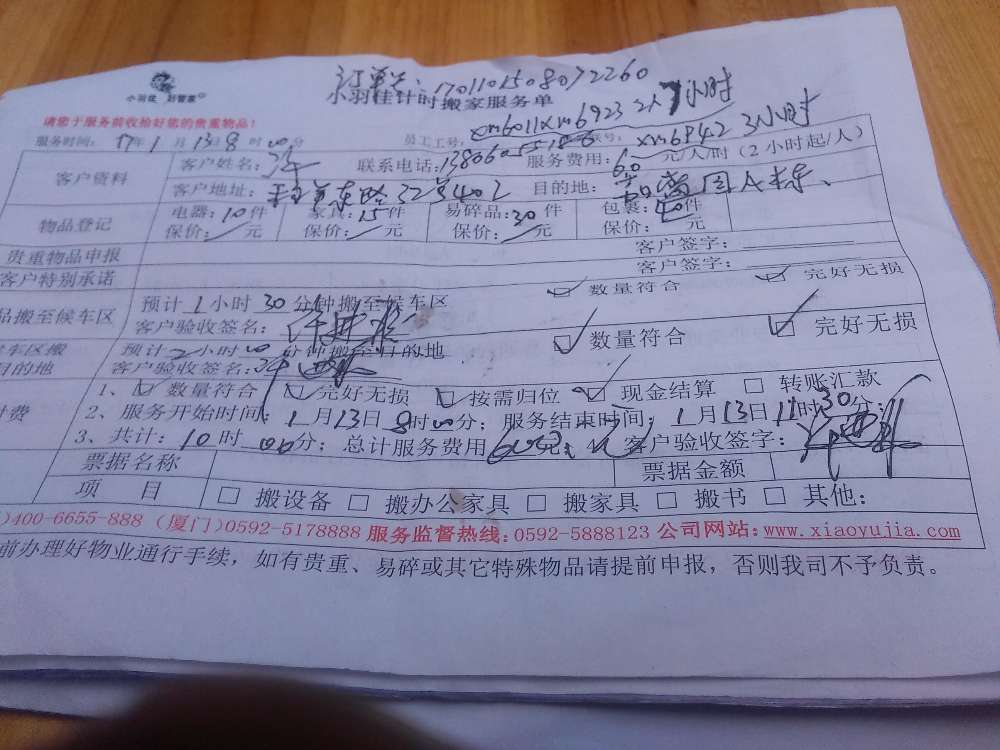 订单号:1701101508072260
小羽佳 好管家
小羽佳计时搬家服务单
请您于服务前收拾好您的贵重物品!
xm6011 xm6923 2人 7小时
服务时间: 17年1月13日8时00分 员工工号: xm6842 3小时
客户资料 客户姓名: 联系电话: 服务费用:60元/人/时(2小时起/人)
客户地址: 东路32号402 目的地:
物品登记 电器:10件 家具:15件 易碎品:30件 包裹:40件
保价: 元 保价: 元 保价: 元 保价: 元
贵重物品申报 客户签字:
客户特别承诺 客户签字:
品搬至候车区 预计1小时30分钟搬至候车区 数量符合 完好无损
客户验收签名:
车区搬 预计2小时00分钟搬至目的地 数量符合 完好无损
目的地 客户验收签名:
付费 1、 数量符合 完好无损 按需归位 现金结算 转账汇款
2、服务开始时间:1月13日8时00分;服务结束时间:1月13日11时30分;
3、共计:10时00分;总计服务费用600元; 客户验收签字:
票据名称 票据金额
项 目 搬设备 搬办公家具 搬家具 搬书 其他:
)400-6655-888 (厦门)0592-5178888 服务监督热线:0592-5888123 公司网站:www.xiaoyujia.com
前办理好物业通行手续,如有贵重、易碎或其它特殊物品请提前申报,否则我司不予负责。